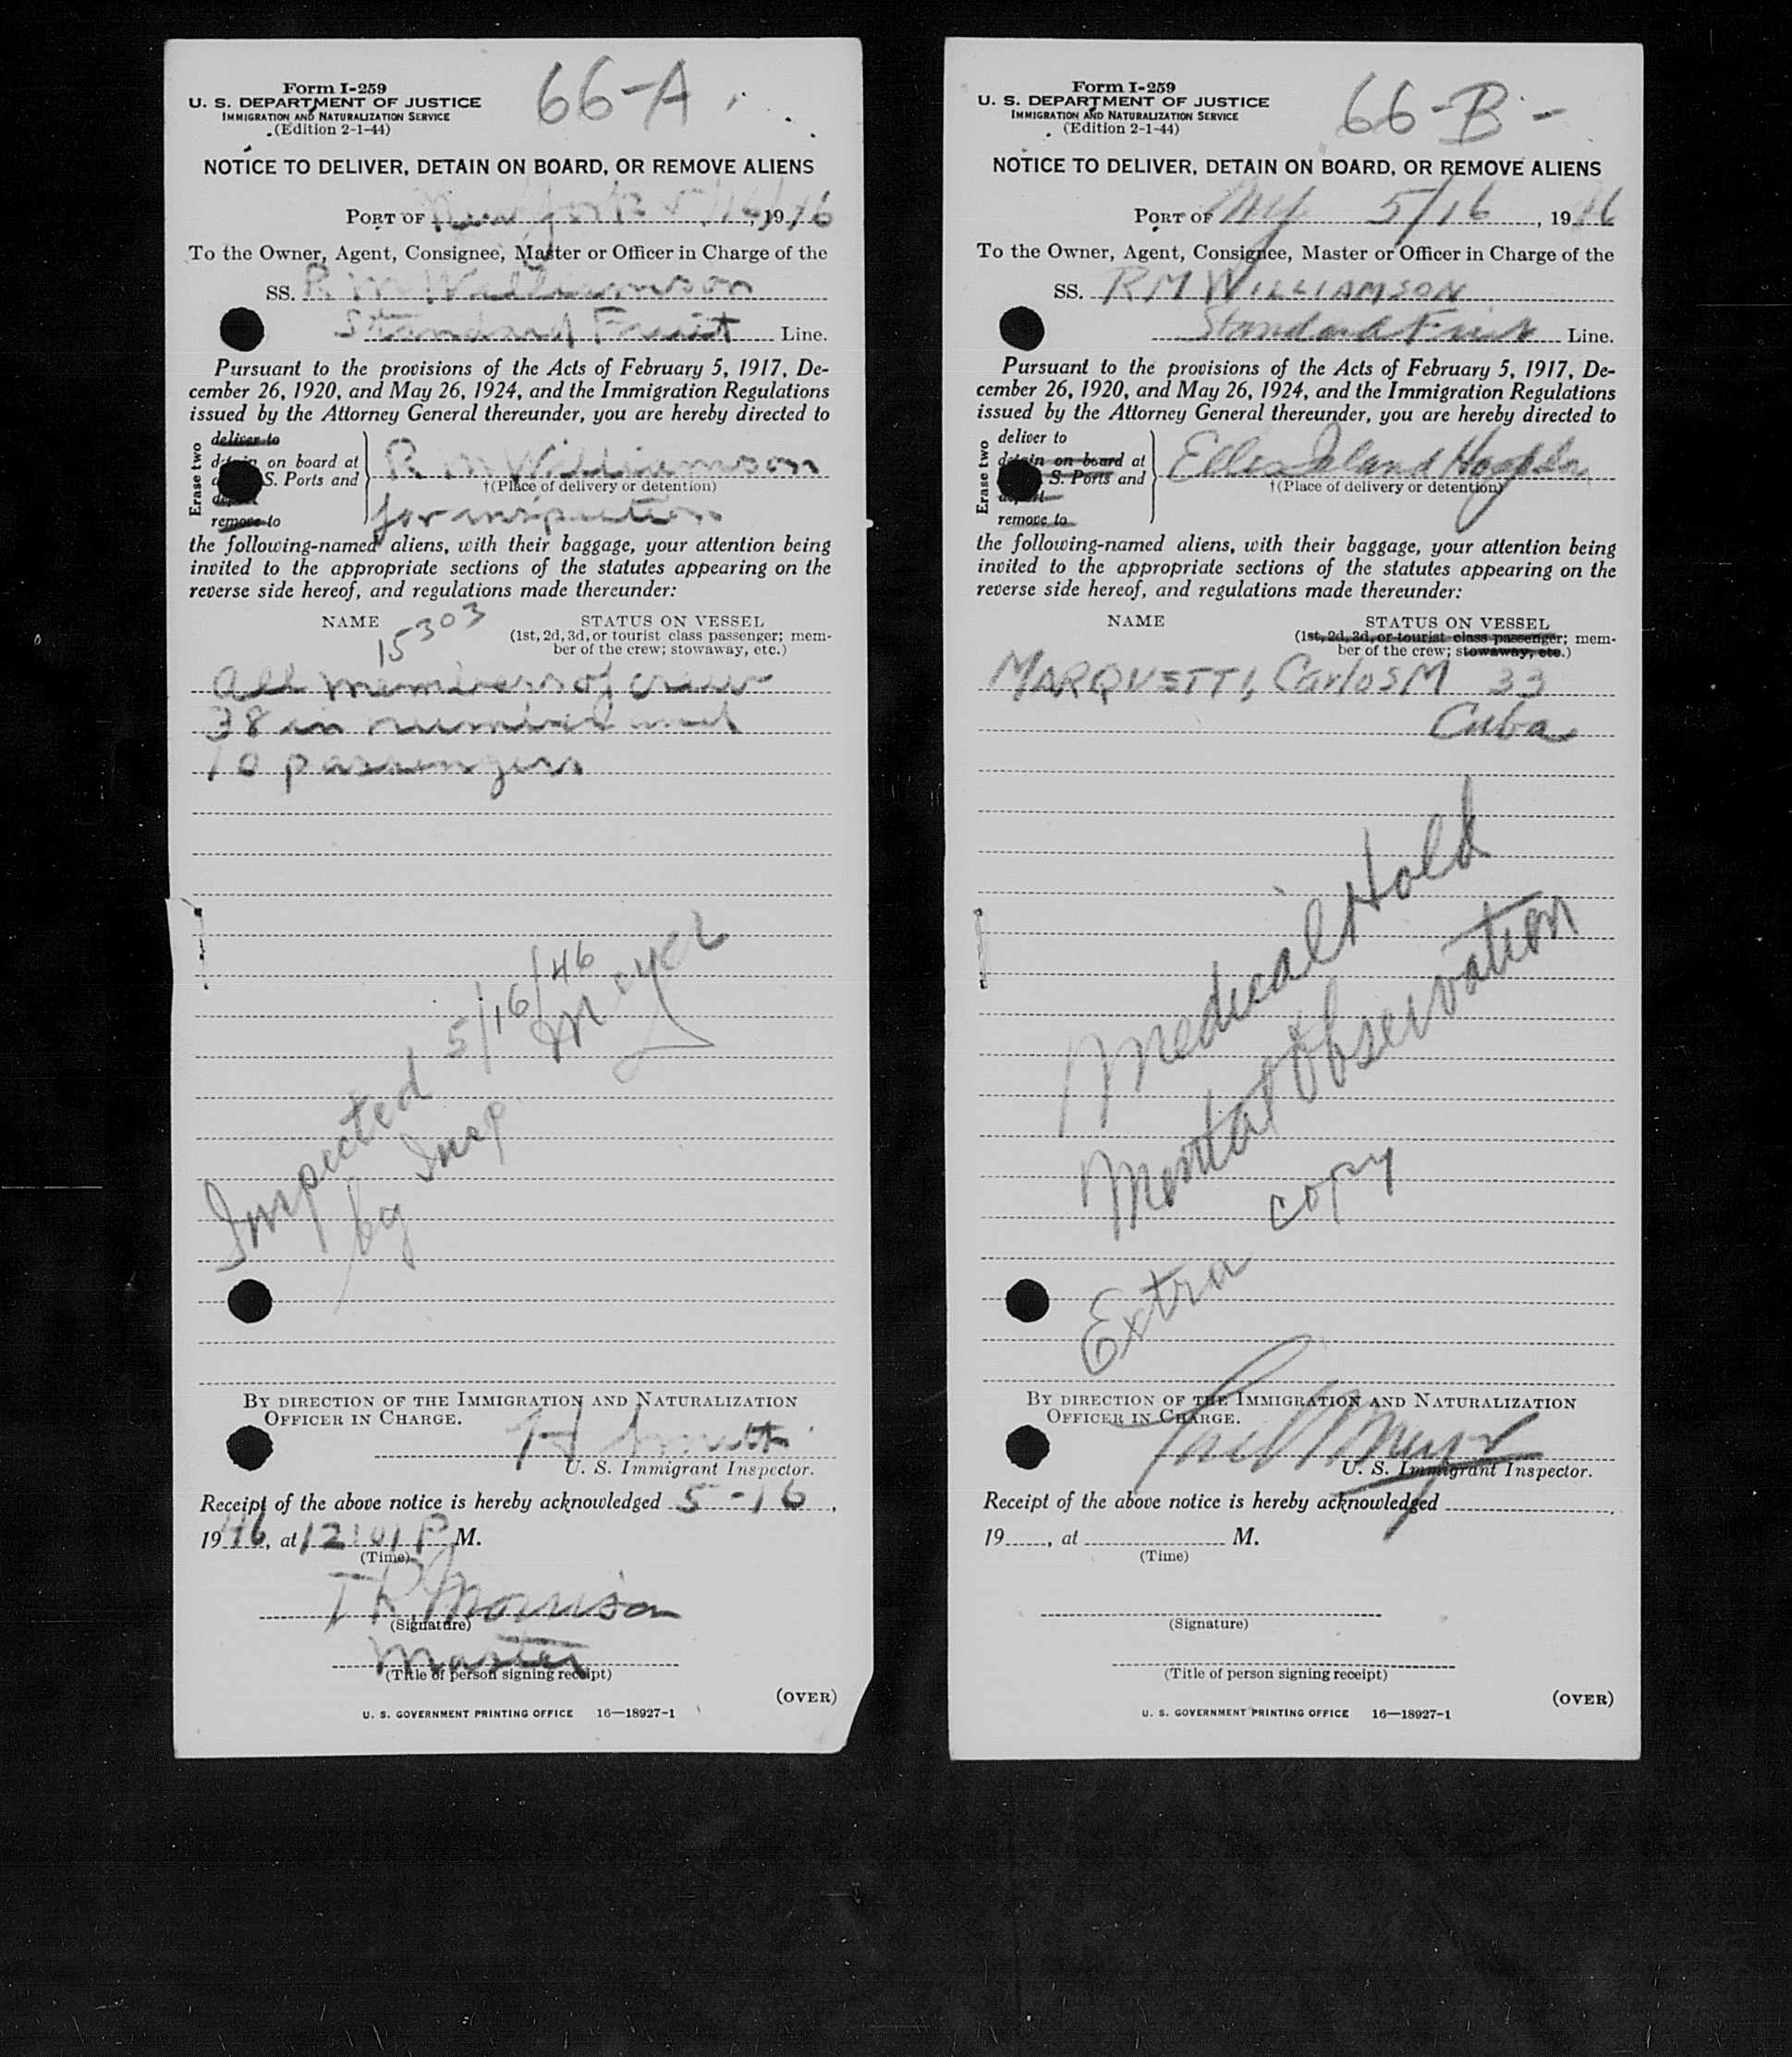 66-A
Form I-259
U. S. DEPARTMENT OF JUSTICE
IMMIGRATION AND NATURALIZATION SERVICE
(Edition 2-1-44)
NOTICE TO DELIVER, DETAIN ON BOARD, OR REMOVE ALIENS
PORT OF New York 5/16, 1946
To the Owner, Agent, Consignee, Master or Officer in Charge of the
SS. R M Williamson
Standard Fruit Line.
Pursuant to the provisions of the Acts of February 5, 1917, De-
cember 26, 1920, and May 26, 1924, and the Immigration Regulations
issued by the Attorney General thereunder, you are hereby directed to
Erase two
deliver to
on board at
S. Ports and
remove to
R M Williamson
†(Place of delivery or detention)
for inspection
the following-named aliens, with their baggage, your attention being
invited to the appropriate sections of the statutes appearing on the
reverse side hereof, and regulations made thereunder:
NAME
15303
STATUS ON VESSEL
(1st, 2d, 3d, or tourist class passenger; mem-
ber of the crew; stowaway, etc.)
all members of crew
38 in number and
10 passengers
Inspected 5/16/46
by Insp. Meyer
BY DIRECTION OF THE IMMIGRATION AND NATURALIZATION
OFFICER IN CHARGE.
U. S. Immigrant Inspector.
Receipt of the above notice is hereby acknowledged 5-16,
1946, at 12:01 P M.
(Time)
T R Morrison
(Signature)
Master
(Title of person signing receipt)
(OVER)
U. S. GOVERNMENT PRINTING OFFICE 16—18927-1
66-B-
Form I-259
U. S. DEPARTMENT OF JUSTICE
IMMIGRATION AND NATURALIZATION SERVICE
(Edition 2-1-44)
NOTICE TO DELIVER, DETAIN ON BOARD, OR REMOVE ALIENS
PORT OF NY 5/16, 1946
To the Owner, Agent, Consignee, Master or Officer in Charge of the
SS. RM WILLIAMSON
Standard Fruit Line.
Pursuant to the provisions of the Acts of February 5, 1917, De-
cember 26, 1920, and May 26, 1924, and the Immigration Regulations
issued by the Attorney General thereunder, you are hereby directed to
Erase two
deliver to
detain on board at
S. Ports and
remove to
Ellis Island Hospital
†(Place of delivery or detention)
the following-named aliens, with their baggage, your attention being
invited to the appropriate sections of the statutes appearing on the
reverse side hereof, and regulations made thereunder:
NAME
STATUS ON VESSEL
(1st, 2d, 3d, or tourist class passenger; mem-
ber of the crew; stowaway, etc.)
MARQUETTI, Carlos M 33
Cuba
Medical Hold
Mental Observation
Extra copy
BY DIRECTION OF THE IMMIGRATION AND NATURALIZATION
OFFICER IN CHARGE.
U. S. Immigrant Inspector.
Receipt of the above notice is hereby acknowledged
19, at M.
(Time)
(Signature)
(Title of person signing receipt)
(OVER)
U. S. GOVERNMENT PRINTING OFFICE 16—18927-1